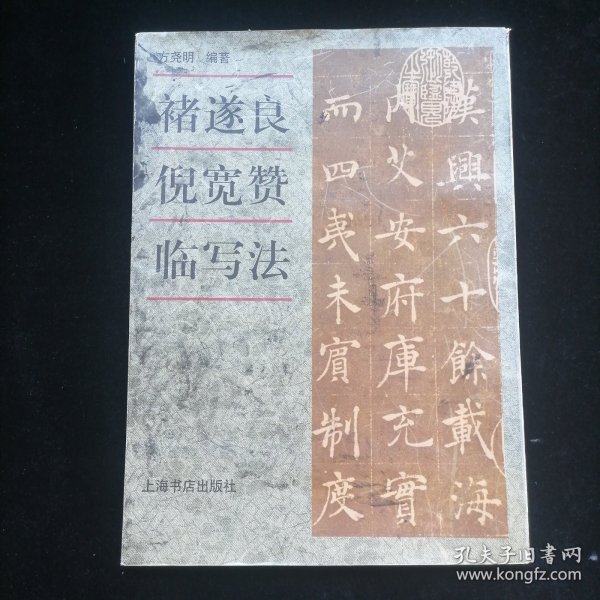 方尧明 编著
褚遂良
倪宽赞
临写法
漢興六十餘載海
内艾安府庫充實
而四夷未賓制度
上海书店出版社
孔夫子旧书网
www.kongfz.com